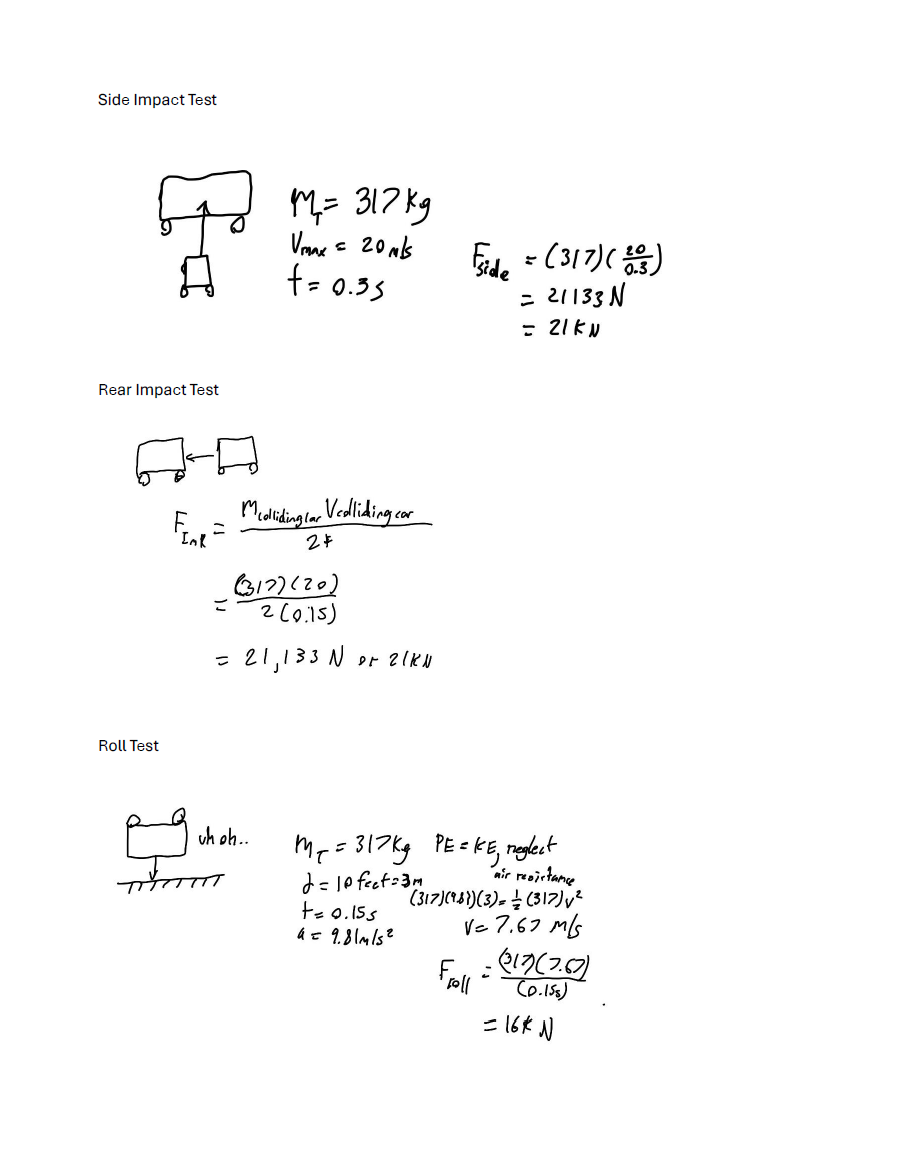 Side Impact Test
M_T = 317 kg
V_max = 20 m/s
t = 0.3 s
F_side = (317)(20/0.3)
= 21133 N
= 21 kN
Rear Impact Test
F_InR = M_colliding car V_colliding car / 2t
= (317)(20) / 2(0.15)
= 21,133 N or 21kN
Roll Test
uh oh..
M_T = 317 kg
d = 10 feet = 3m
t = 0.15 s
a = 9.81 m/s²
PE = KE, neglect
air resistance
(317)(9.81)(3) = 1/2 (317) v²
V = 7.67 m/s
F_roll = (317)(7.67) / (0.15s)
= 16 k N